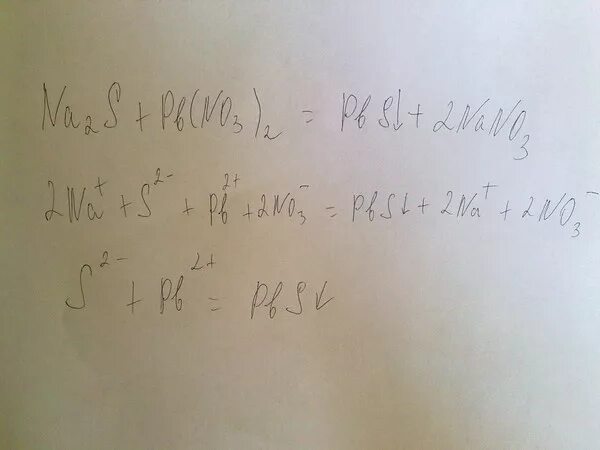 Na₂S + Pb(NO₃)₂ = PbS↓ + 2NaNO₃
2Na⁺ + S²⁻ + Pb²⁺ + 2NO₃⁻ = PbS↓ + 2Na⁺ + 2NO₃⁻
S²⁻ + Pb²⁺ = PbS↓